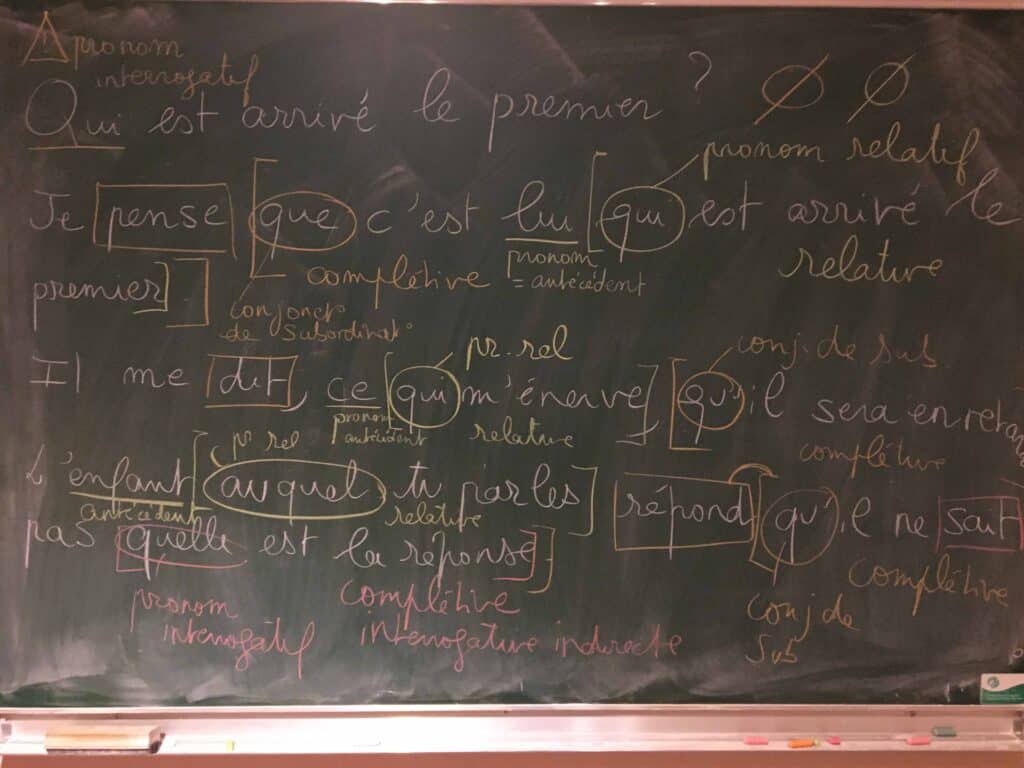 pronom
interrogatif
Qui est arrivé le premier ? Ø Ø
pronom relatif
Je pense [que c'est lui [qui est arrivé le
pronom
= antécédent
relative
complétive
premier]]
conjonct°
de subordinat°
pr. rel
conj. de sub.
Il me dit, ce [qui m'énerve] [qu'il sera en retard
pronom
antécédent
relative
complétive
pr rel
L'enfant [auquel tu parles] répond [qu'il ne sait
antécédent
relative
pas quelle est la réponse]]
complétive
pronom
interrogatif
complétive
interrogative indirecte
conj de
sub